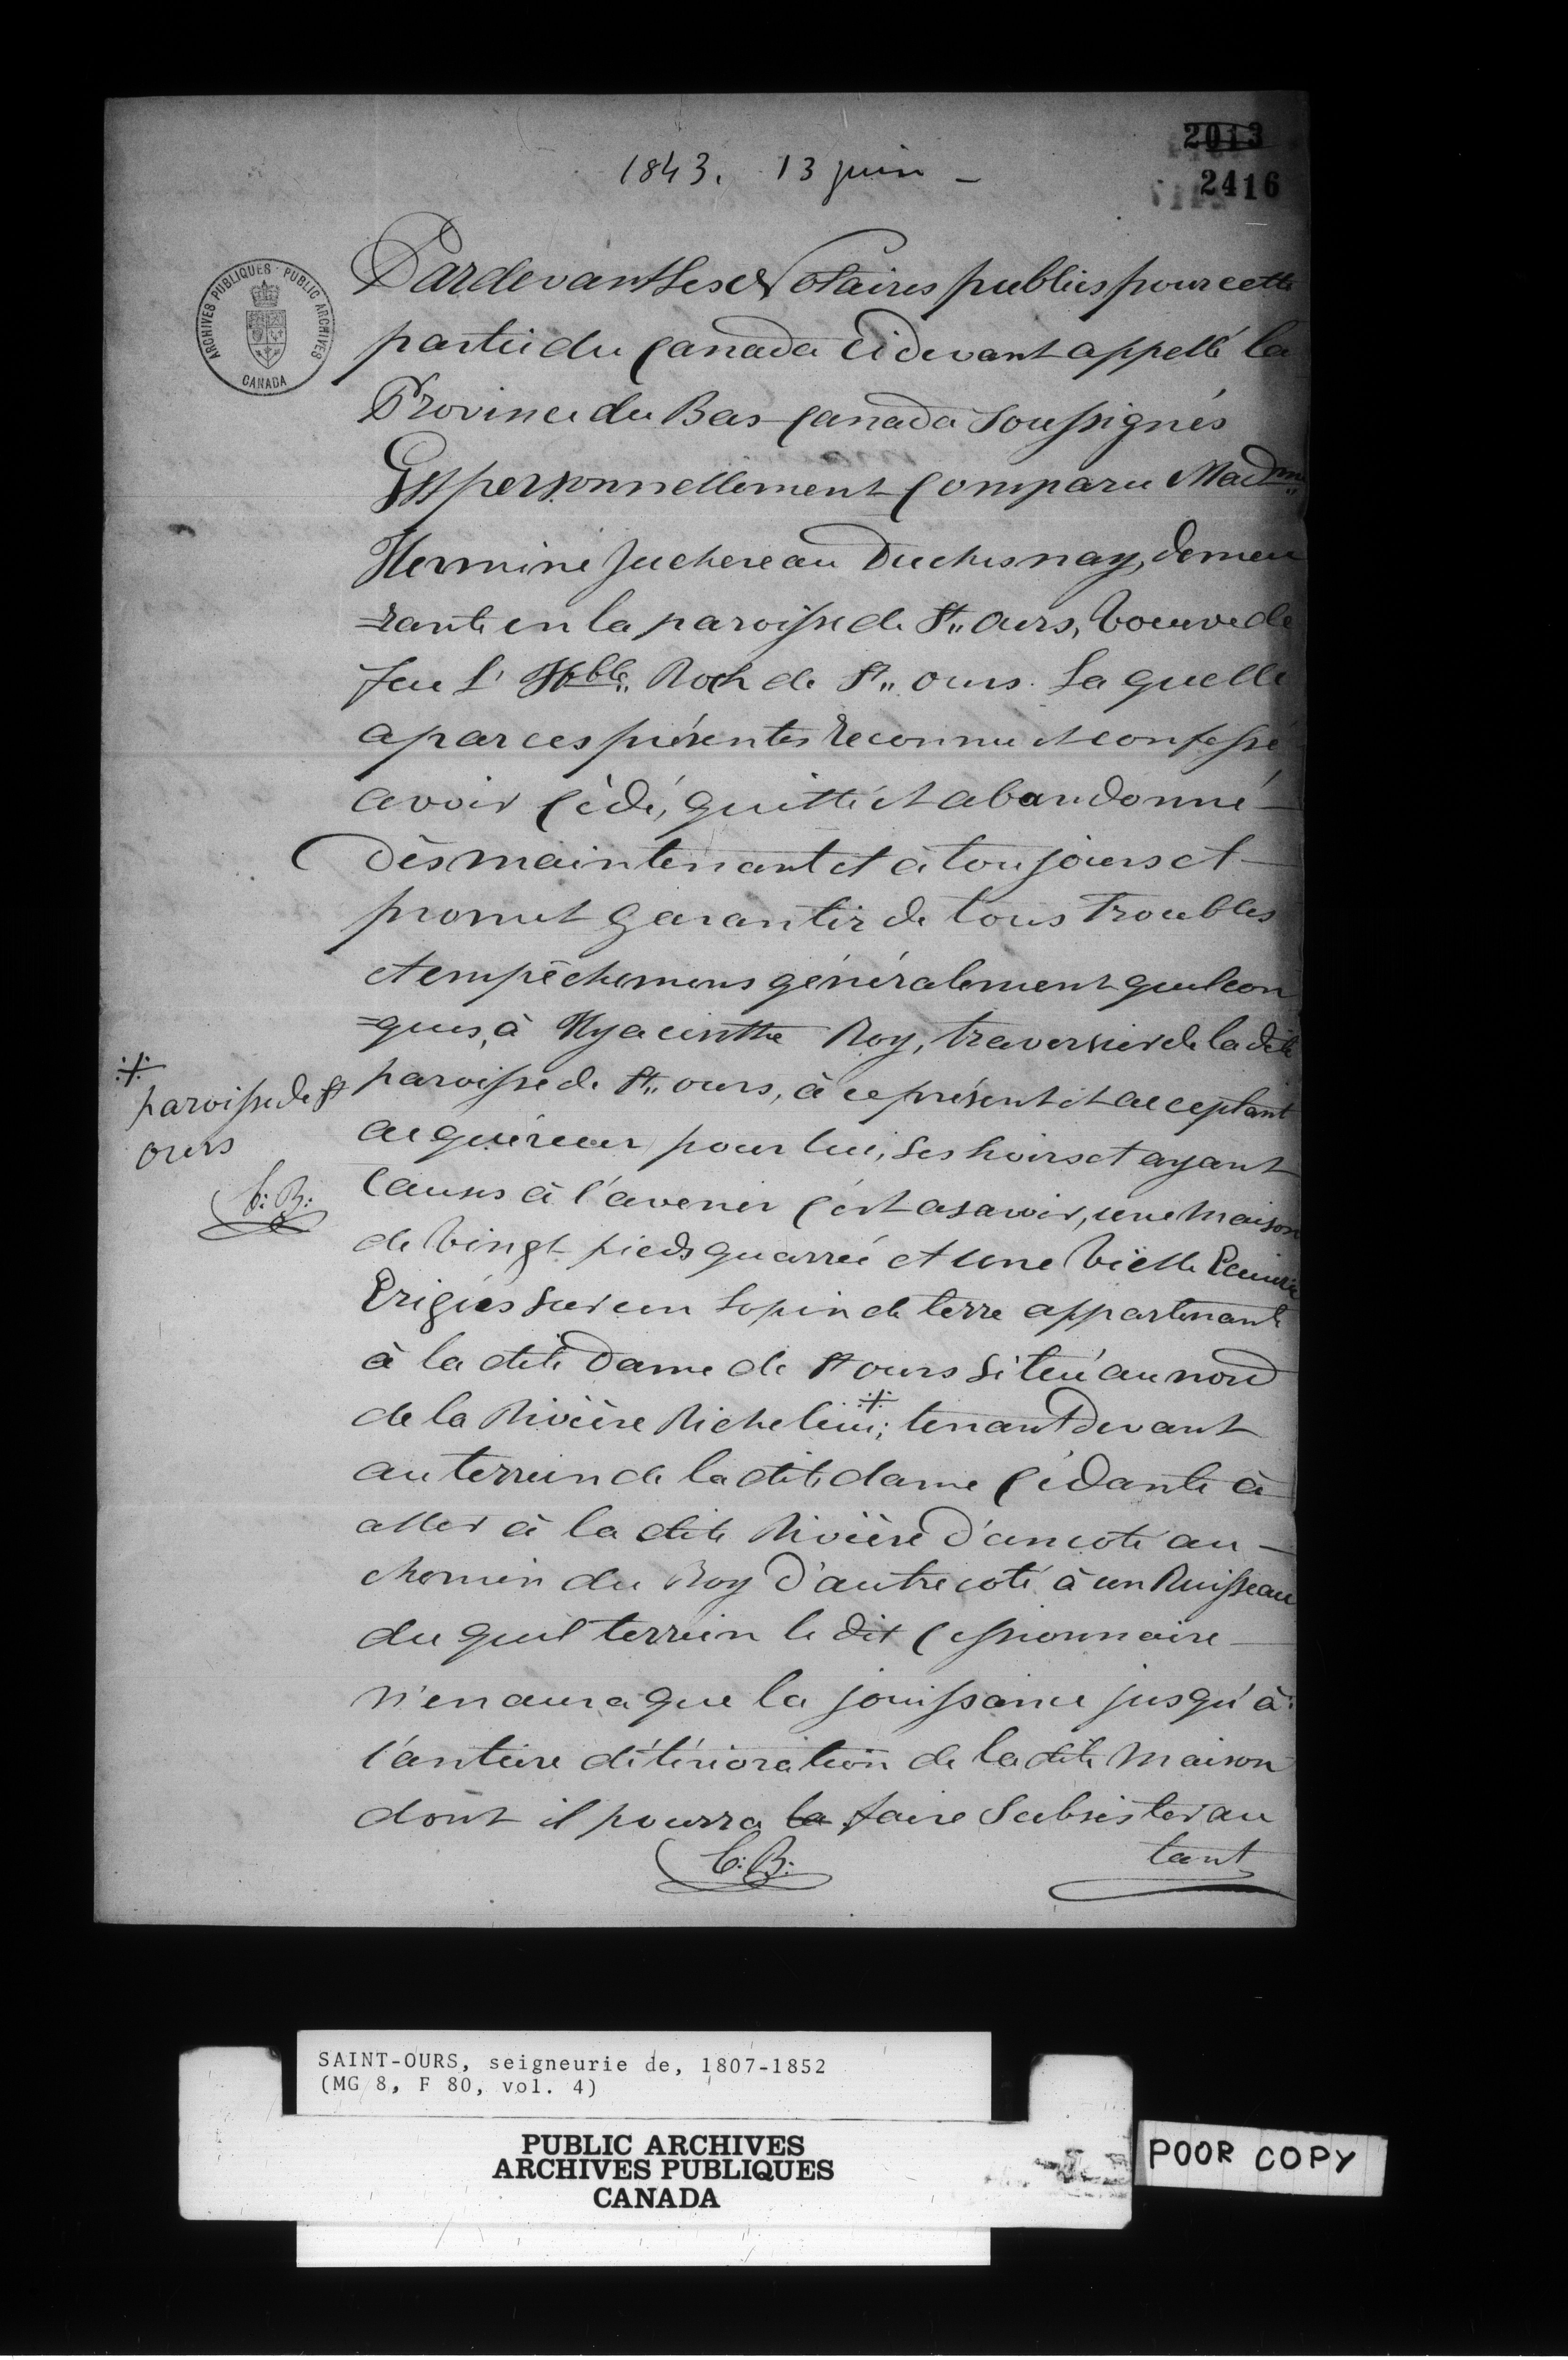 2013
2416
1843. 13 juin -
ARCHIVES PUBLIQUES · PUBLIC ARCHIVES
CANADA
Pardevant Les Notaires publics pour cette
partie du Canada Cidevant appellé la
Province du Bas-Canada Soussignés
Est personnellement Comparu Madme
Hermine Juchereau Duchesnay, demeu
=rante en la paroisse de St. Ours, Veuve de
feu L' Hble Roch de St. Ours. Laquelle
a par ces présentes Reconnu et confessé
avoir Cédé, quitté et abandonné -
Dès maintenant et à toujours et -
promet garantir de tous Troubles
et empêchemens généralement quelcon
=ques, à Hyacinthe Roy, traversier de la dite
paroisse de St. ours, à ce présent et acceptant
acquéreur pour lui, Ses hoirs et ayant
Causes à l'avenir C'est asavoir, une Maison
de Vingt pieds quarrée et une Vielle Ecurie
Erigées Sur un Lopin de terre appartenant
à la dite Dame de St ours Situé au nord
de la Rivière Richelieu; tenant Devant
au terrein de la dite dame Cédante à
aller à la dite Rivière D'un coté au -
chemin du Roy D'autre coté à un Ruisseau
du quel terrein le dit Cessionnaire -
n'en aura que la jouissance jusqu'à
l'antière détérioration de la dite Maison
dont il pourra la faire Subsister au
tant
C: B:
paroisse de St
ours
C: B:
SAINT-OURS, seigneurie de, 1807-1852
(MG 8, F 80, vol. 4)
PUBLIC ARCHIVES
ARCHIVES PUBLIQUES
CANADA
POOR COPY